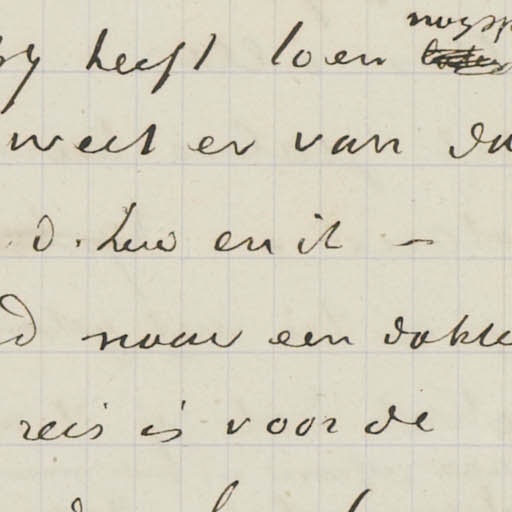 hy heeft toen
weet er van da
d. Luu en ik –
d naar een dokte
reis is voor de